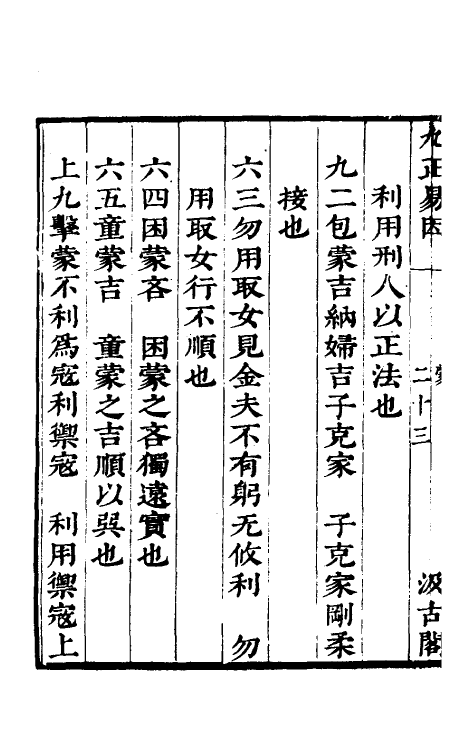 九正易因 蒙 二十三 汲古閣
利用刑人以正法也
九二包蒙吉納婦吉子克家 子克家剛柔
接也
六三勿用取女見金夫不有躬无攸利 勿
用取女行不順也
六四困蒙吝 困蒙之吝獨遠實也
六五童蒙吉 童蒙之吉順以巽也
上九擊蒙不利爲寇利禦寇 利用禦寇上